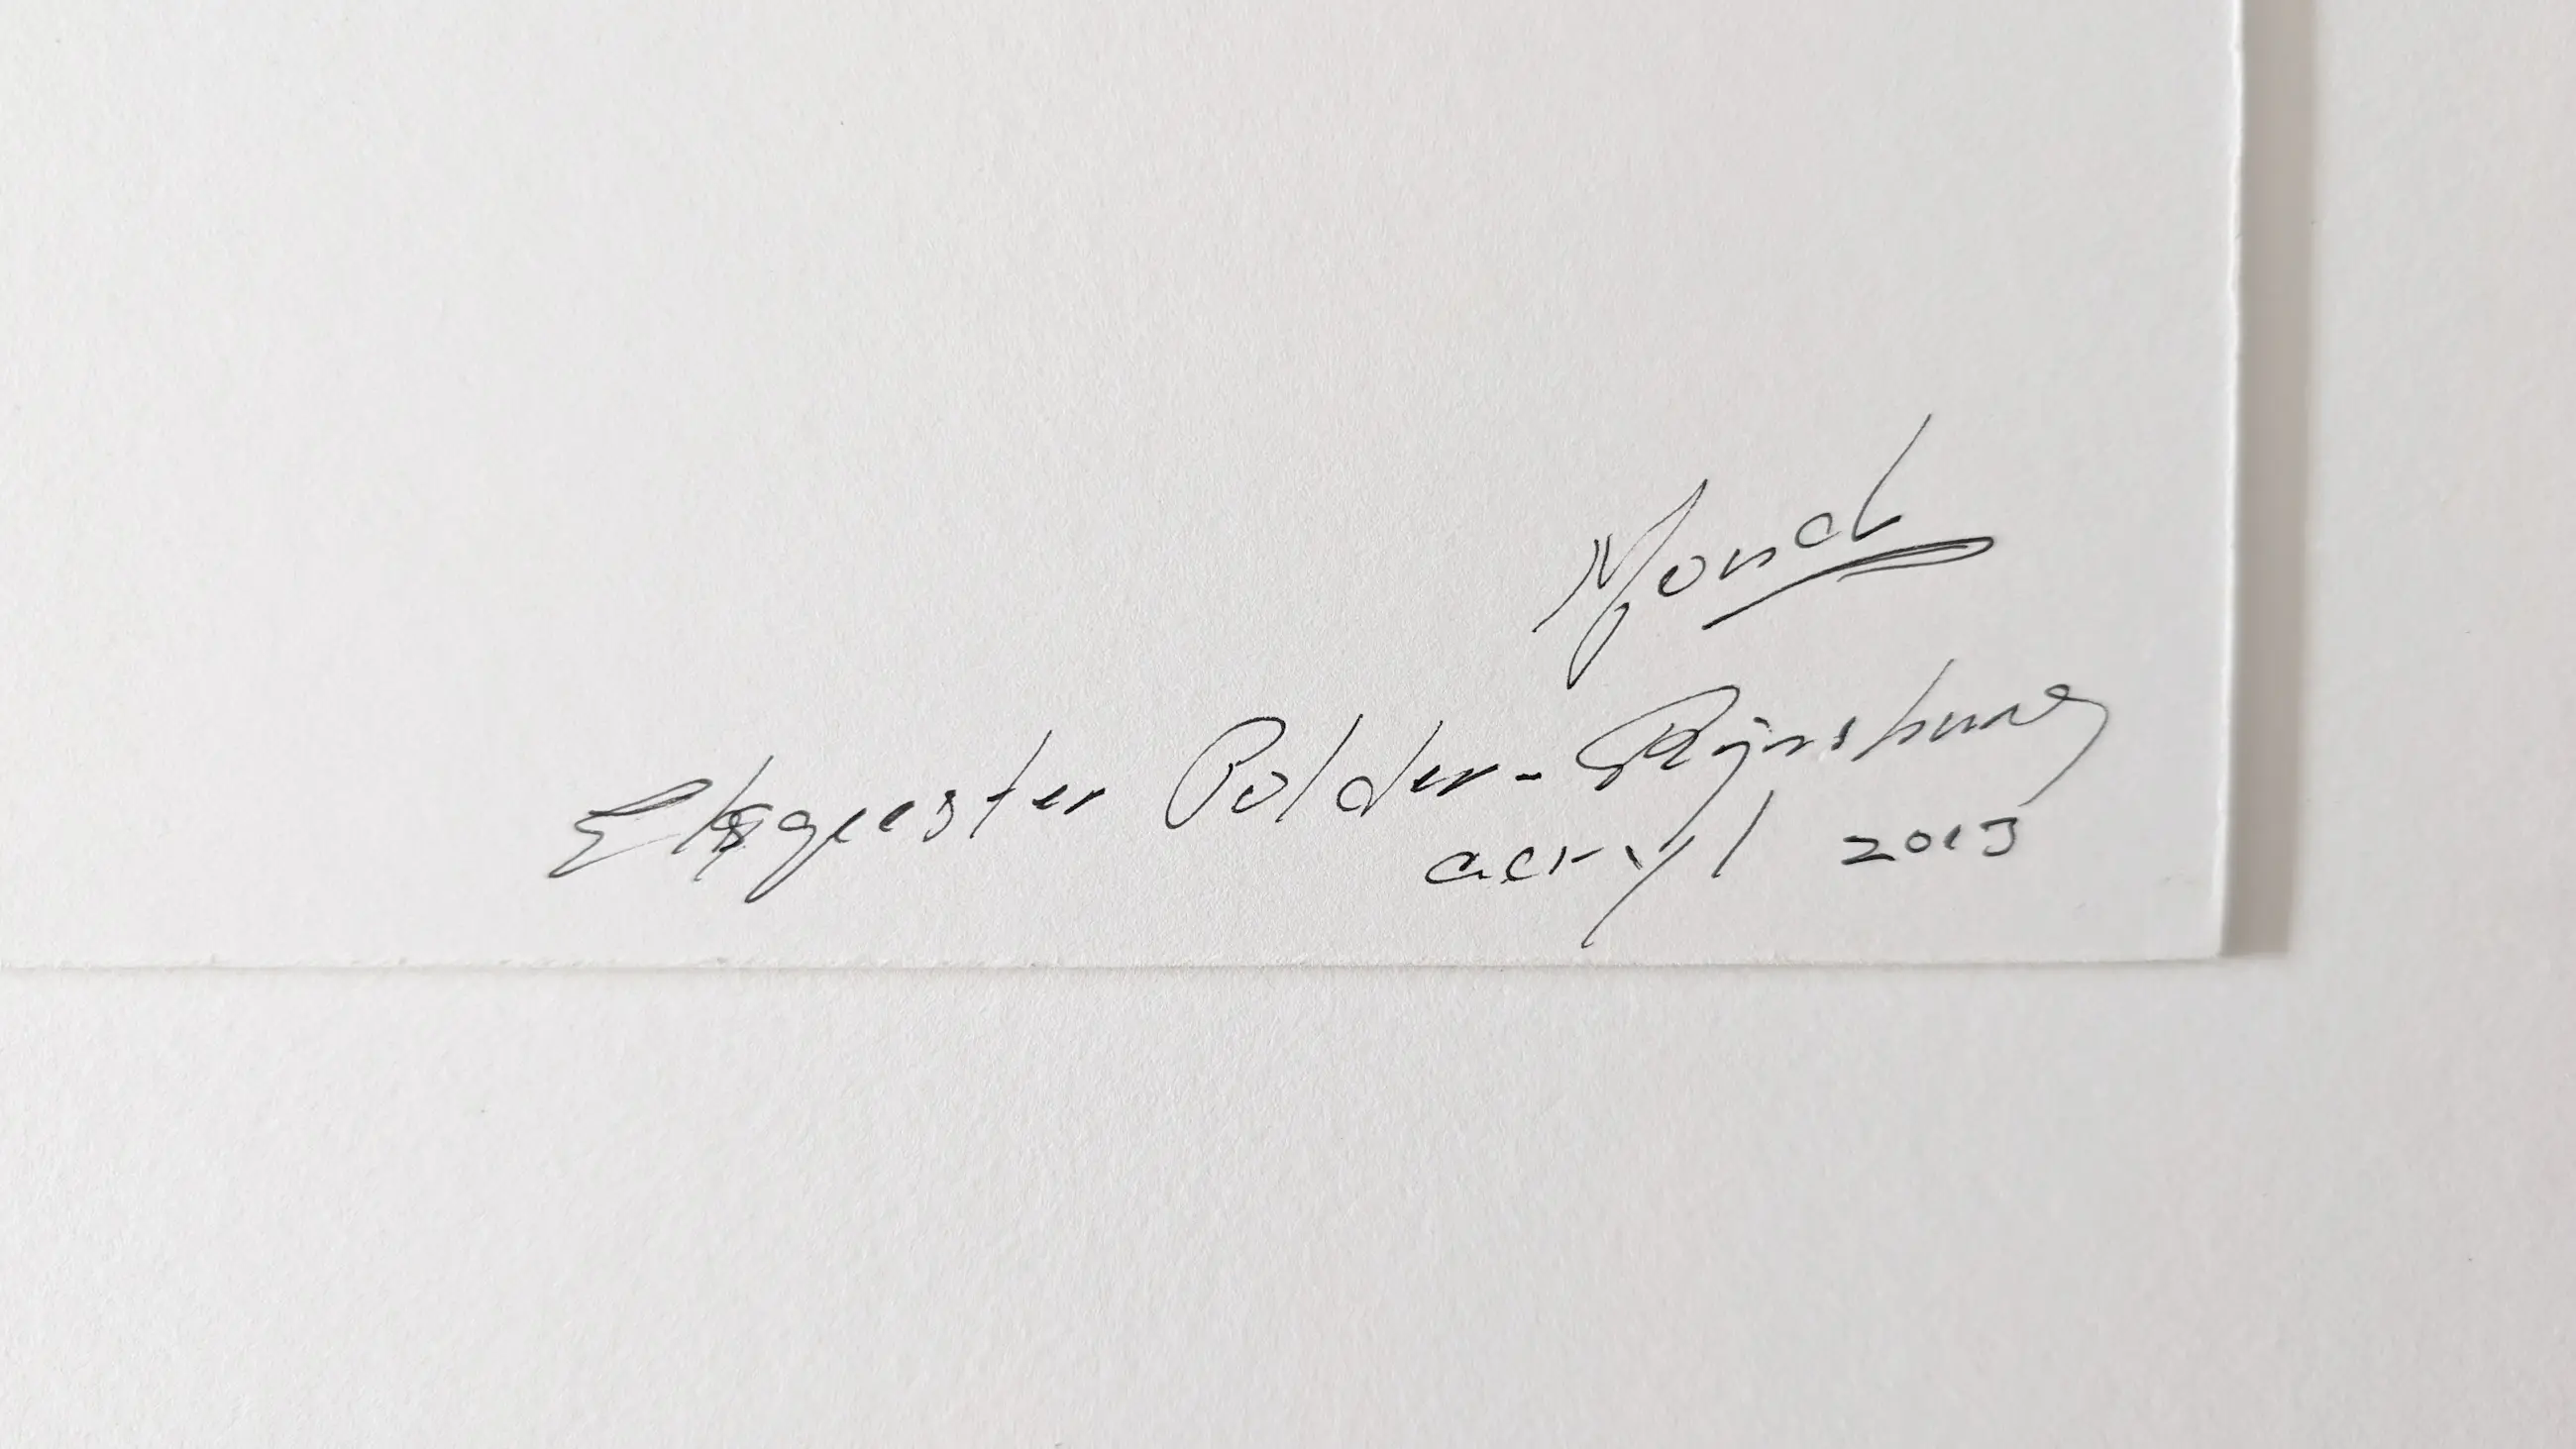 Mond
Elsgeester Polder - Rijnsburg
acryl 2013